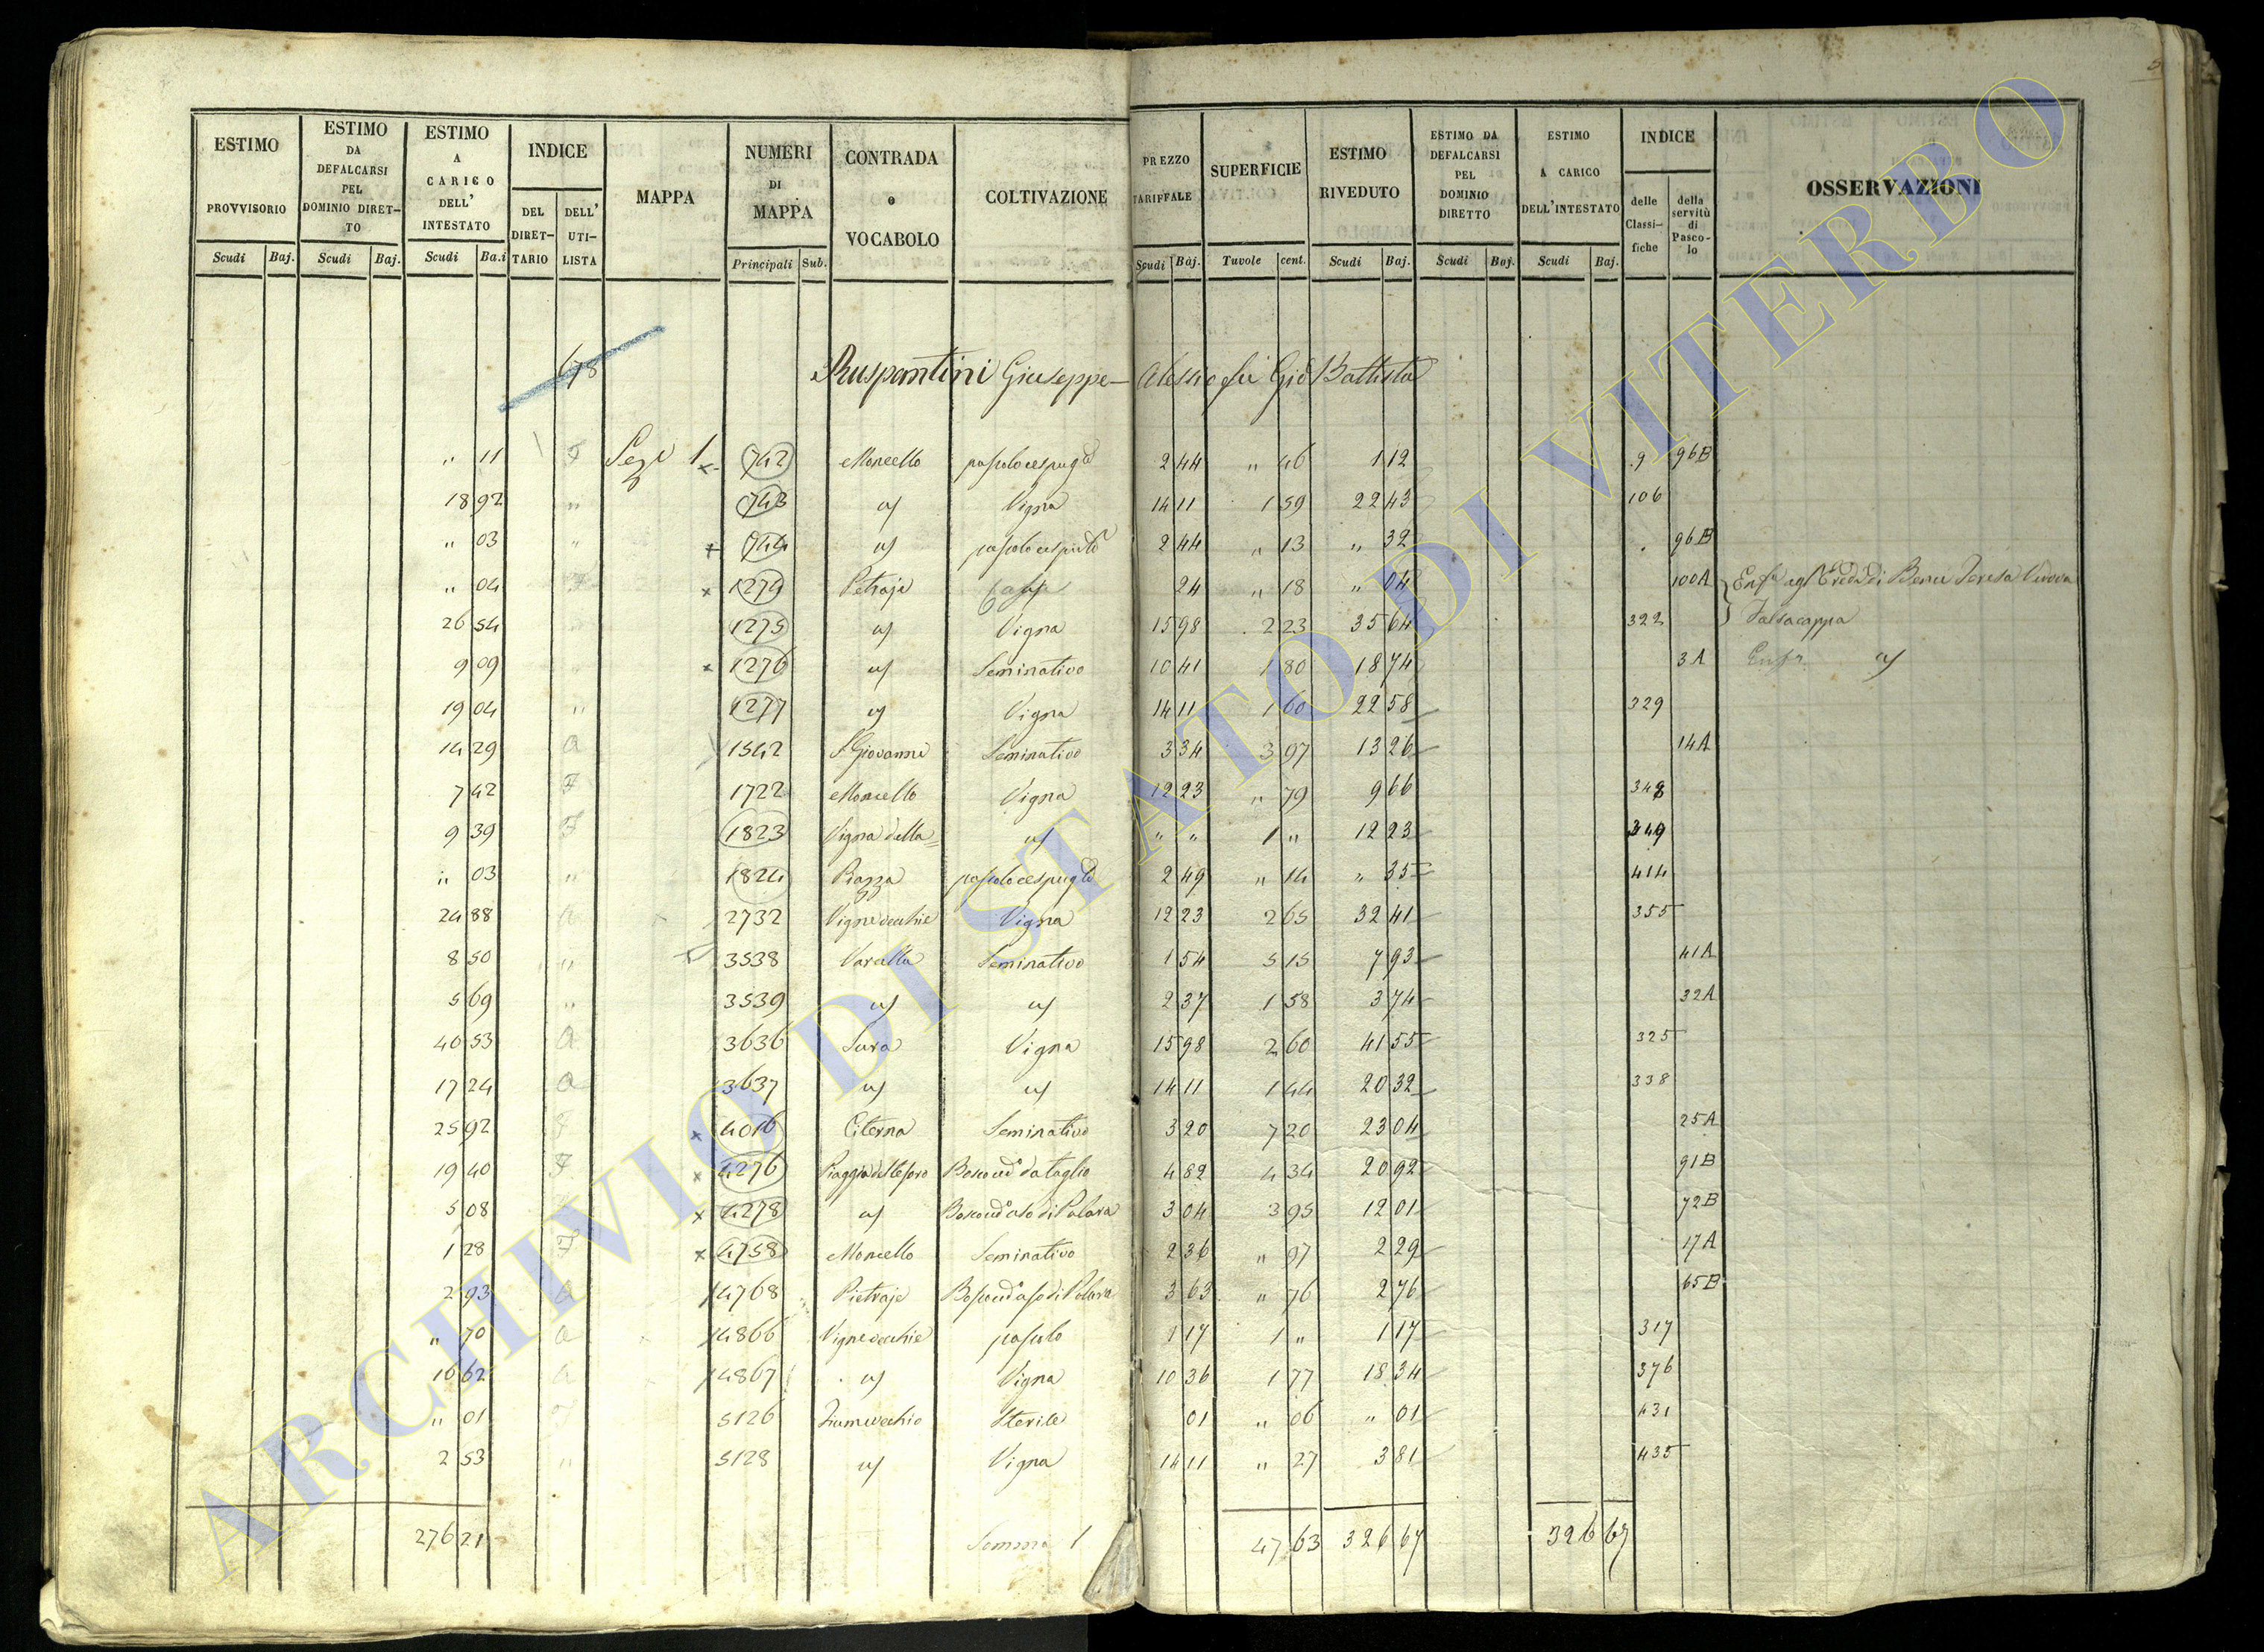 5
ESTIMO PROVVISORIO | ESTIMO DA DEFALCARSI PEL DOMINIO DIRET–TO | ESTIMO A CARICO DELL' INTESTATO | INDICE | MAPPA | NUMERI DI MAPPA | CONTRADA o VOCABOLO | COLTIVAZIONE | PREZZO TARIFFALE | SUPERFICIE | ESTIMO RIVEDUTO | ESTIMO DA DEFALCARSI PEL DOMINIO DIRETTO | ESTIMO A CARICO DELL'INTESTATO | INDICE | OSSERVAZIONI
DEL DIRET–TARIO | DELL' UTI–LISTA | delle Classi–fiche | della servitù di Pasco–lo
Scudi | Baj. | Scudi | Baj. | Scudi | Ba.i | Principali | Sub. | Scudi | Baj. | Tuvole | cent. | Scudi | Baj. | Scudi | Baj. | Scudi | Baj.
678 Ruspantini Giuseppe – Alessio fu Gio Battista
" 11 | F | Sez. 1 | x | 742 | Moncello | 2 44 | " 46 | 1 12 | 9 | 96B
18 92 | " | 743 | " | Vigna | 14 11 | 1 59 | 22 43 | 106
" 03 | " | x | 744 | " | 2 44 | " 13 | " 32 | 96B
" 04 | F | x | 1274 | Petraje | 24 | " 18 | " 04 | 100A | Teresa Vedova
26 54 | 1275 | " | Vigna | 15 98 | 2 23 | 35 64 | 322 | Falsacappa
9 09 | x | 1276 | " | Seminativo | 10 41 | 1 80 | 18 74 | 3A
19 04 | " | 1277 | " | Vigna | 14 11 | 1 60 | 22 58 | 329
14 29 | a | 1542 | S. Giovanni | Seminativo | 3 34 | 3 97 | 13 26 | 14A
7 42 | F | 1722 | Moncello | Vigna | 12 23 | " 79 | 9 66 | 348
9 39 | F | 1823 | Vigna della | " | " " | 1 " | 12 23 | 349
" 03 | " | 1824 | Piazza | 2 49 | " 14 | " 35 | 414
24 88 | a | 2732 | Vigne vecchie | Vigna | 12 23 | 2 65 | 32 41 | 355
8 50 | " | 3538 | Varalla | Seminativo | 1 54 | 5 15 | 7 93 | 41A
5 69 | " | 3539 | " | " | 2 37 | 1 58 | 3 74 | 32A
40 53 | a | 3636 | Vigna | 15 98 | 2 60 | 41 55 | 325
17 24 | a | 3637 | " | " | 14 11 | 1 44 | 20 32 | 338
25 92 | x | 4016 | Citerna | Seminativo | 3 20 | 7 20 | 23 04 | 25A
19 40 | F | x | 4276 | da taglio | 4 82 | 4 34 | 20 92 | 91B
5 08 | x | 4278 | " | 3 04 | 3 95 | 12 01 | 72B
1 28 | F | x | 4758 | Moncello | Seminativo | 2 36 | " 97 | 2 29 | 17A
2 93 | a | 4768 | Pietraje | 3 63 | " 76 | 2 76 | 65B
" 70 | a | 4866 | Vigne vecchie | pascolo | 1 17 | 1 " | 1 17 | 317
10 62 | a | 4867 | " | Vigna | 10 36 | 1 77 | 18 34 | 376
" 01 | 5126 | Fiumevechio | Sterile | 01 | " 06 | " 01 | 431
2 53 | " | 5128 | " | Vigna | 14 11 | " 27 | 3 81 | 435
276 21 | Somma 1 | 47 63 | 326 67 | 326 67
ARCHIVIO DI STATO DI VITERBO